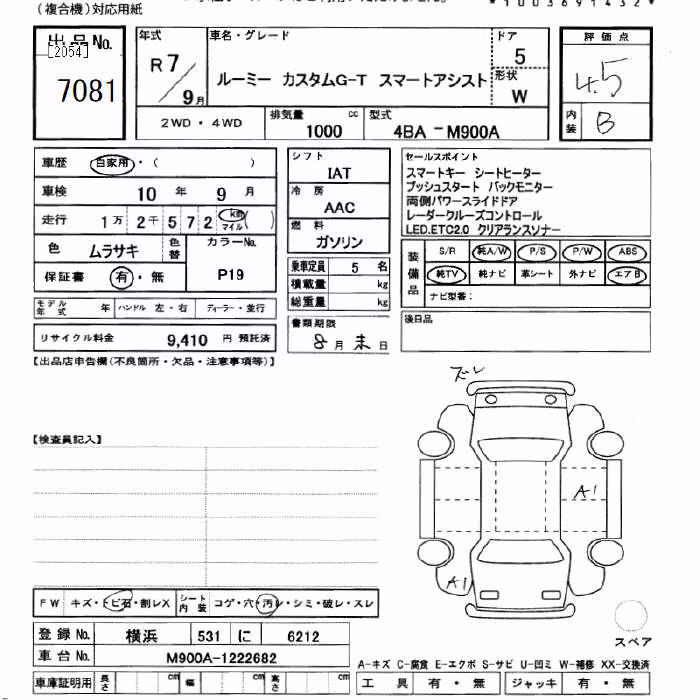 (複合機)対応用紙
*1003691432*
出品No.
[2054]
7081
年式
R7
9月
車名・グレード
ルーミー カスタムG-T スマートアシスト
ドア
5
形状
W
評価点
4.5
内装
B
2WD・4WD
排気量
1000 cc
型式
4BA-M900A
車歴 自家用・( )
車検 10年 9月
走行 1万 2千 5 7 2 km マイル ( )
色 ムラサキ 色替
カラーNo.
P19
保証書 有・無
モデル年式 年 ハンドル 左・右 ディーラー・並行
リサイクル料金 9,410 円 預託済
シフト
IAT
冷房
AAC
燃料
ガソリン
乗車定員 5 名
積載量 kg
総重量 kg
書類期限
8月末日
セールスポイント
スマートキー シートヒーター
プッシュスタート バックモニター
両側パワースライドドア
レーダークルーズコントロール
LED.ETC2.0 クリアランスソナー
装備品
S/R 純A/W P/S P/W ABS
純TV 純ナビ 革シート 外ナビ エアB
ナビ型番:
後日品
【出品店申告欄(不良箇所・欠品・注意事項等)】
【検査員記入】
ズレ
A1
A1
スペア
FW キズ・トビ石・割レX シート内装 コゲ・穴・汚レ・シミ・破レ・スレ
登録No. 横浜 531 に 6212
車台No. M900A-1222682
車庫証明用 長さ cm 幅 cm 高さ cm
A-キズ C-腐食 E-エクボ S-サビ U-凹ミ W-補修 XX-交換済
工具 有・無 ジャッキ 有・無